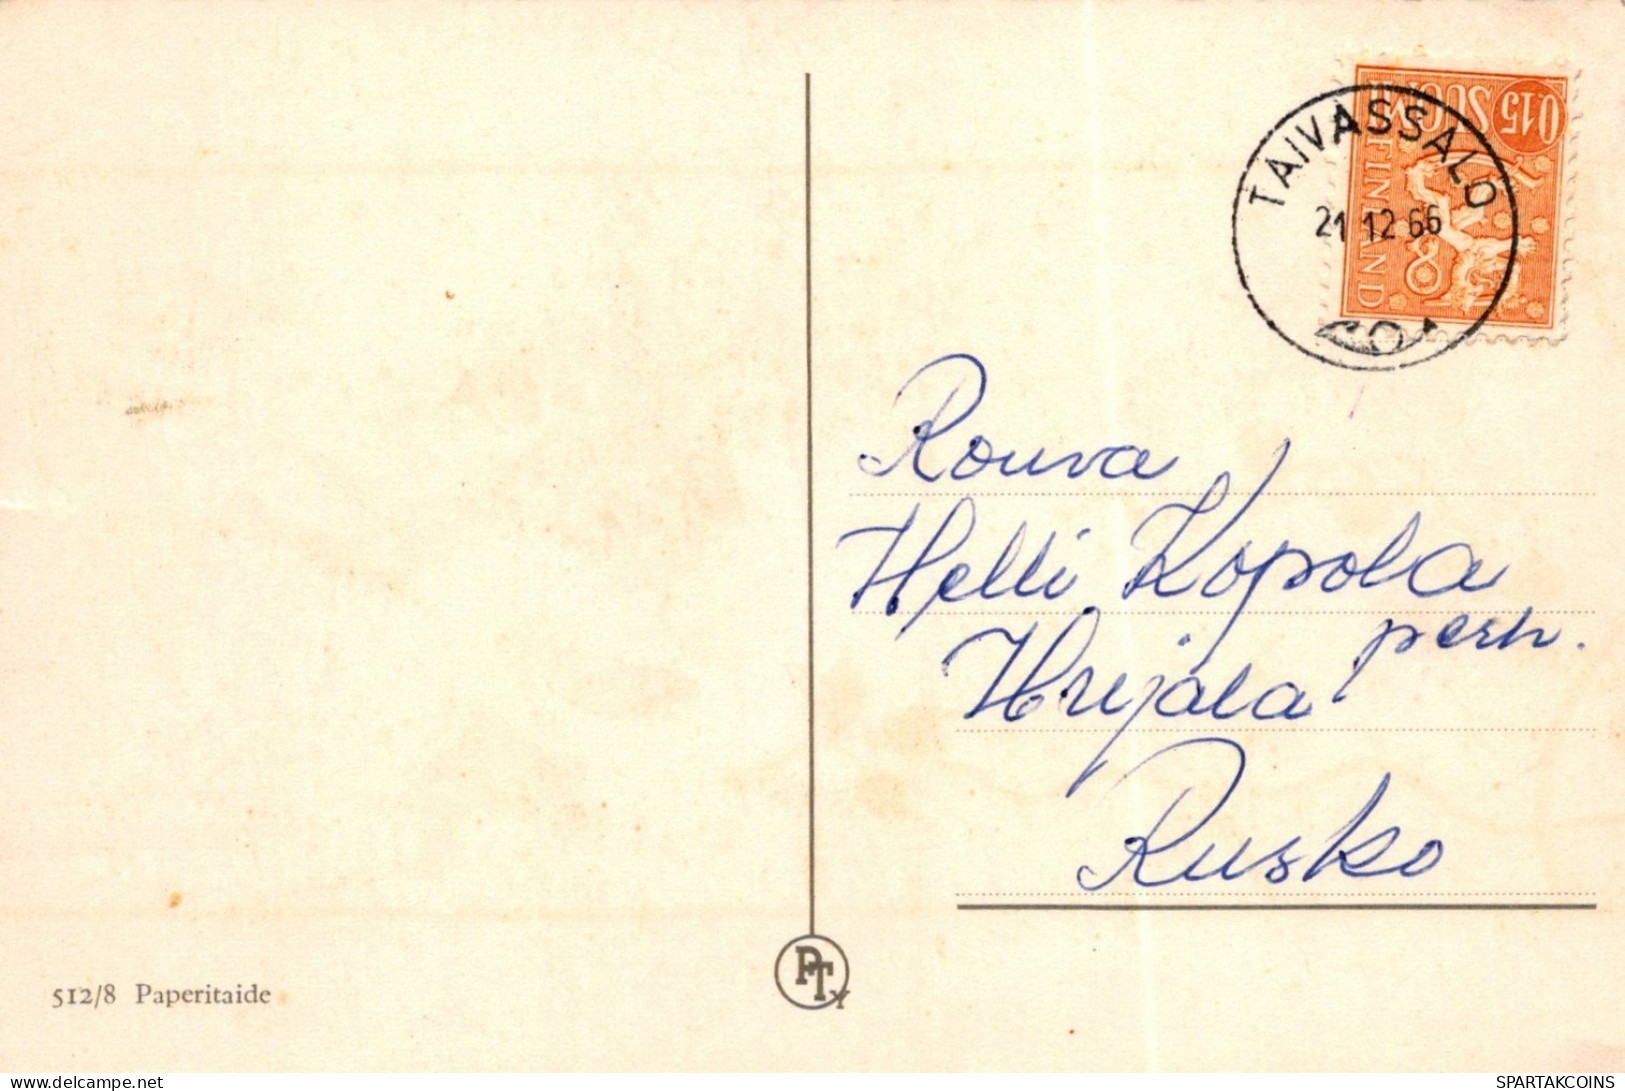 0.15 SUOMI
FINLAND
TAIVASSALO
21.12.66
Rouva
Helli Kopola
perh.
Hujala
Rusko
PTY
512/8 Paperitaide
www.delcampe.net
SPARTAKCOINS